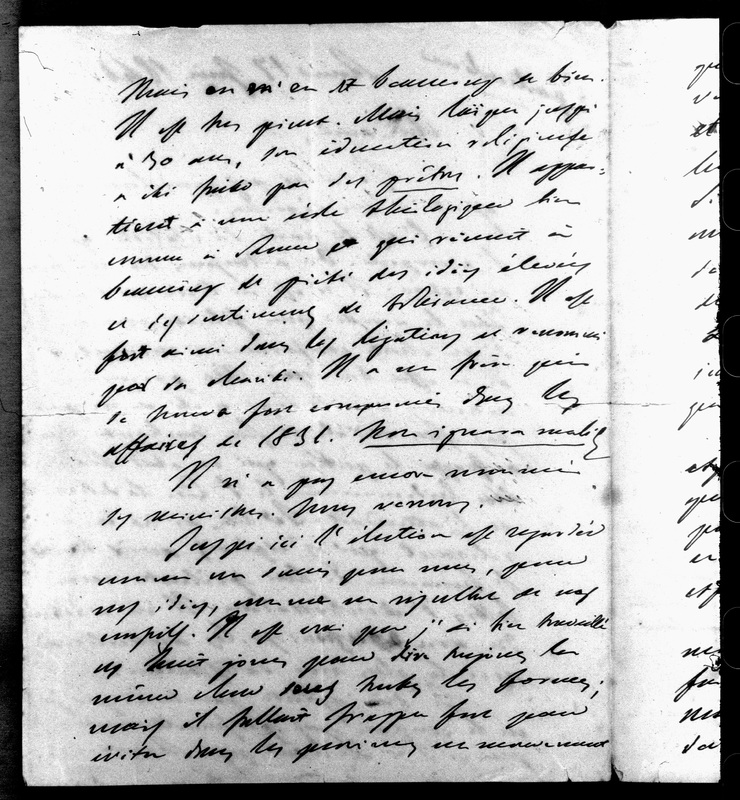 Mais on m'en dit beaucoup de bien.
Il est très pieux. Mais laïque jusqu'
à 30 ans, son éducation religieuse
a été faite par des prêtres. Il appar-
tient à une école théologique bien
connue à Rome et qui réunit à
beaucoup de piété des idées élevées
et des sentiments de tolérance. Il est
fort aimé dans les légations et renommé
par sa charité. Il a un frère qui
se trouva fort compromis dans les
affaires de 1831. Non ignara mali
Il n'a pas encore nommé
ses ministres. Nous verrons.
Jusqu'ici l'élection est regardée
comme un succès pour nous, pour
nos idées, comme un résultat de nos
conseils. Il est vrai que j'ai bien travaillé
ces huit jours pour dire toujours la
même chose sous toutes les formes;
mais il fallait frapper fort pour
éviter dans les provinces un mouvement